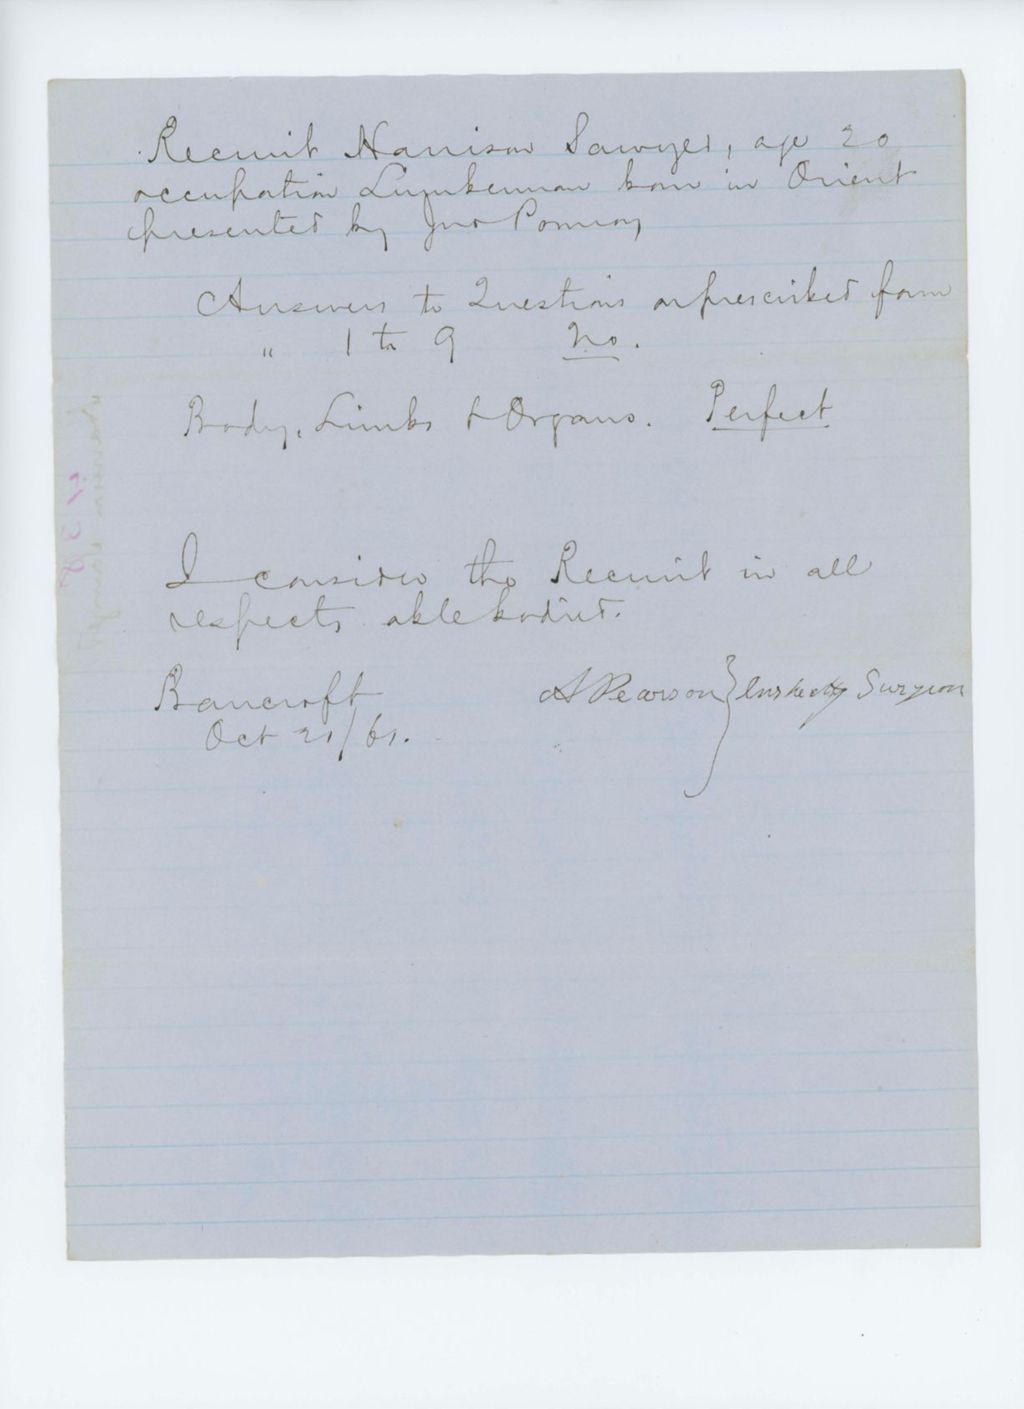 Recruit Harrison Sawyer, age 20
occupation Lumberman born in Orient
presented by Jno Pomroy
Answers to Questions on prescribed form
" 1 to 9 No.
Body, Limbs & Organs. Perfect
I consider the Recruit in all
respects ablebodied.
Bancroft A Pearson } Inspectg Surgeon
Oct 21/61.